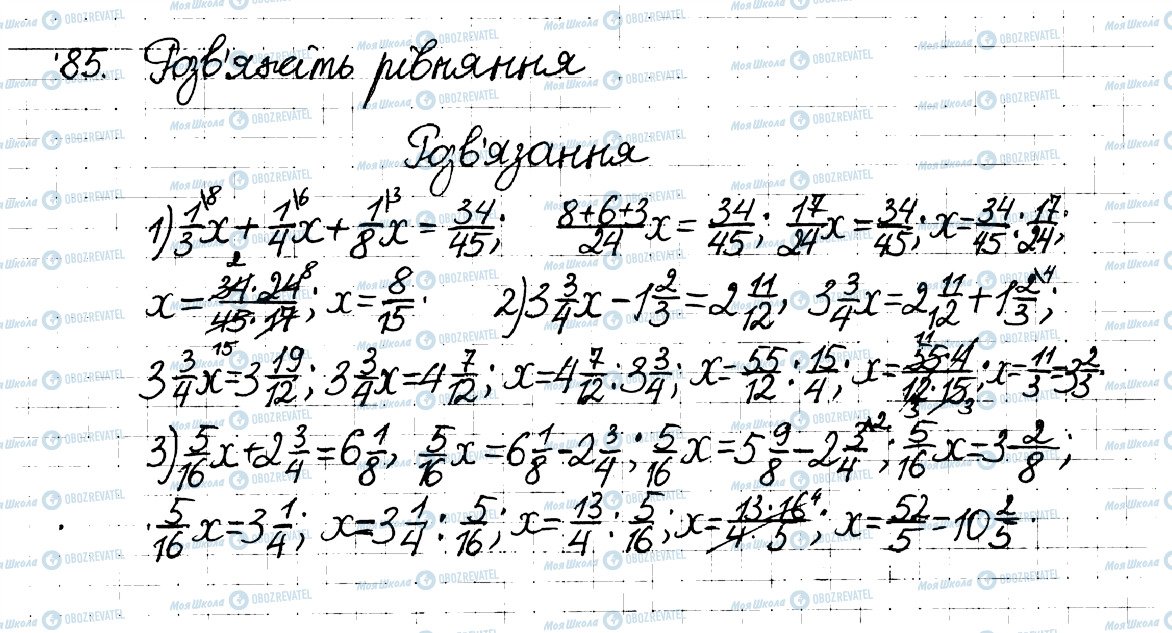 85. Розв'яжіть рівняння
Розв'язання
1) 1\8/3 x + 1\6/4 x + 1\3/8 x = 34/45; (8+6+3)/24 x = 34/45; 17/24 x = 34/45; x = 34/45 : 17/24;
x = (34 2 · 24 8)/(45 15 · 17); x = 8/15. 2) 3 3/4 x - 1 2/3 = 2 11/12; 3 3/4 x = 2 11/12 + 1 2\4/3;
3 3/4 x = 3 19/12; 3 3/4 x = 4 7/12; x = 4 7/12 : 3 3/4; x = 55/12 : 15/4; x = (55 11 · 4)/(12 3 · 15 3); x = 11/3 = 3 2/3.
3) 5/16 x + 2 3/4 = 6 1/8; 5/16 x = 6 1/8 - 2 3/4; 5/16 x = 5 9/8 - 2 3\2/4; 5/16 x = 3 2/8;
5/16 x = 3 1/4; x = 3 1/4 : 5/16; x = 13/4 : 5/16; x = (13 · 16 4)/(4 · 5); x = 52/5 = 10 2/5.
Моя Школа OBOZREVATEL